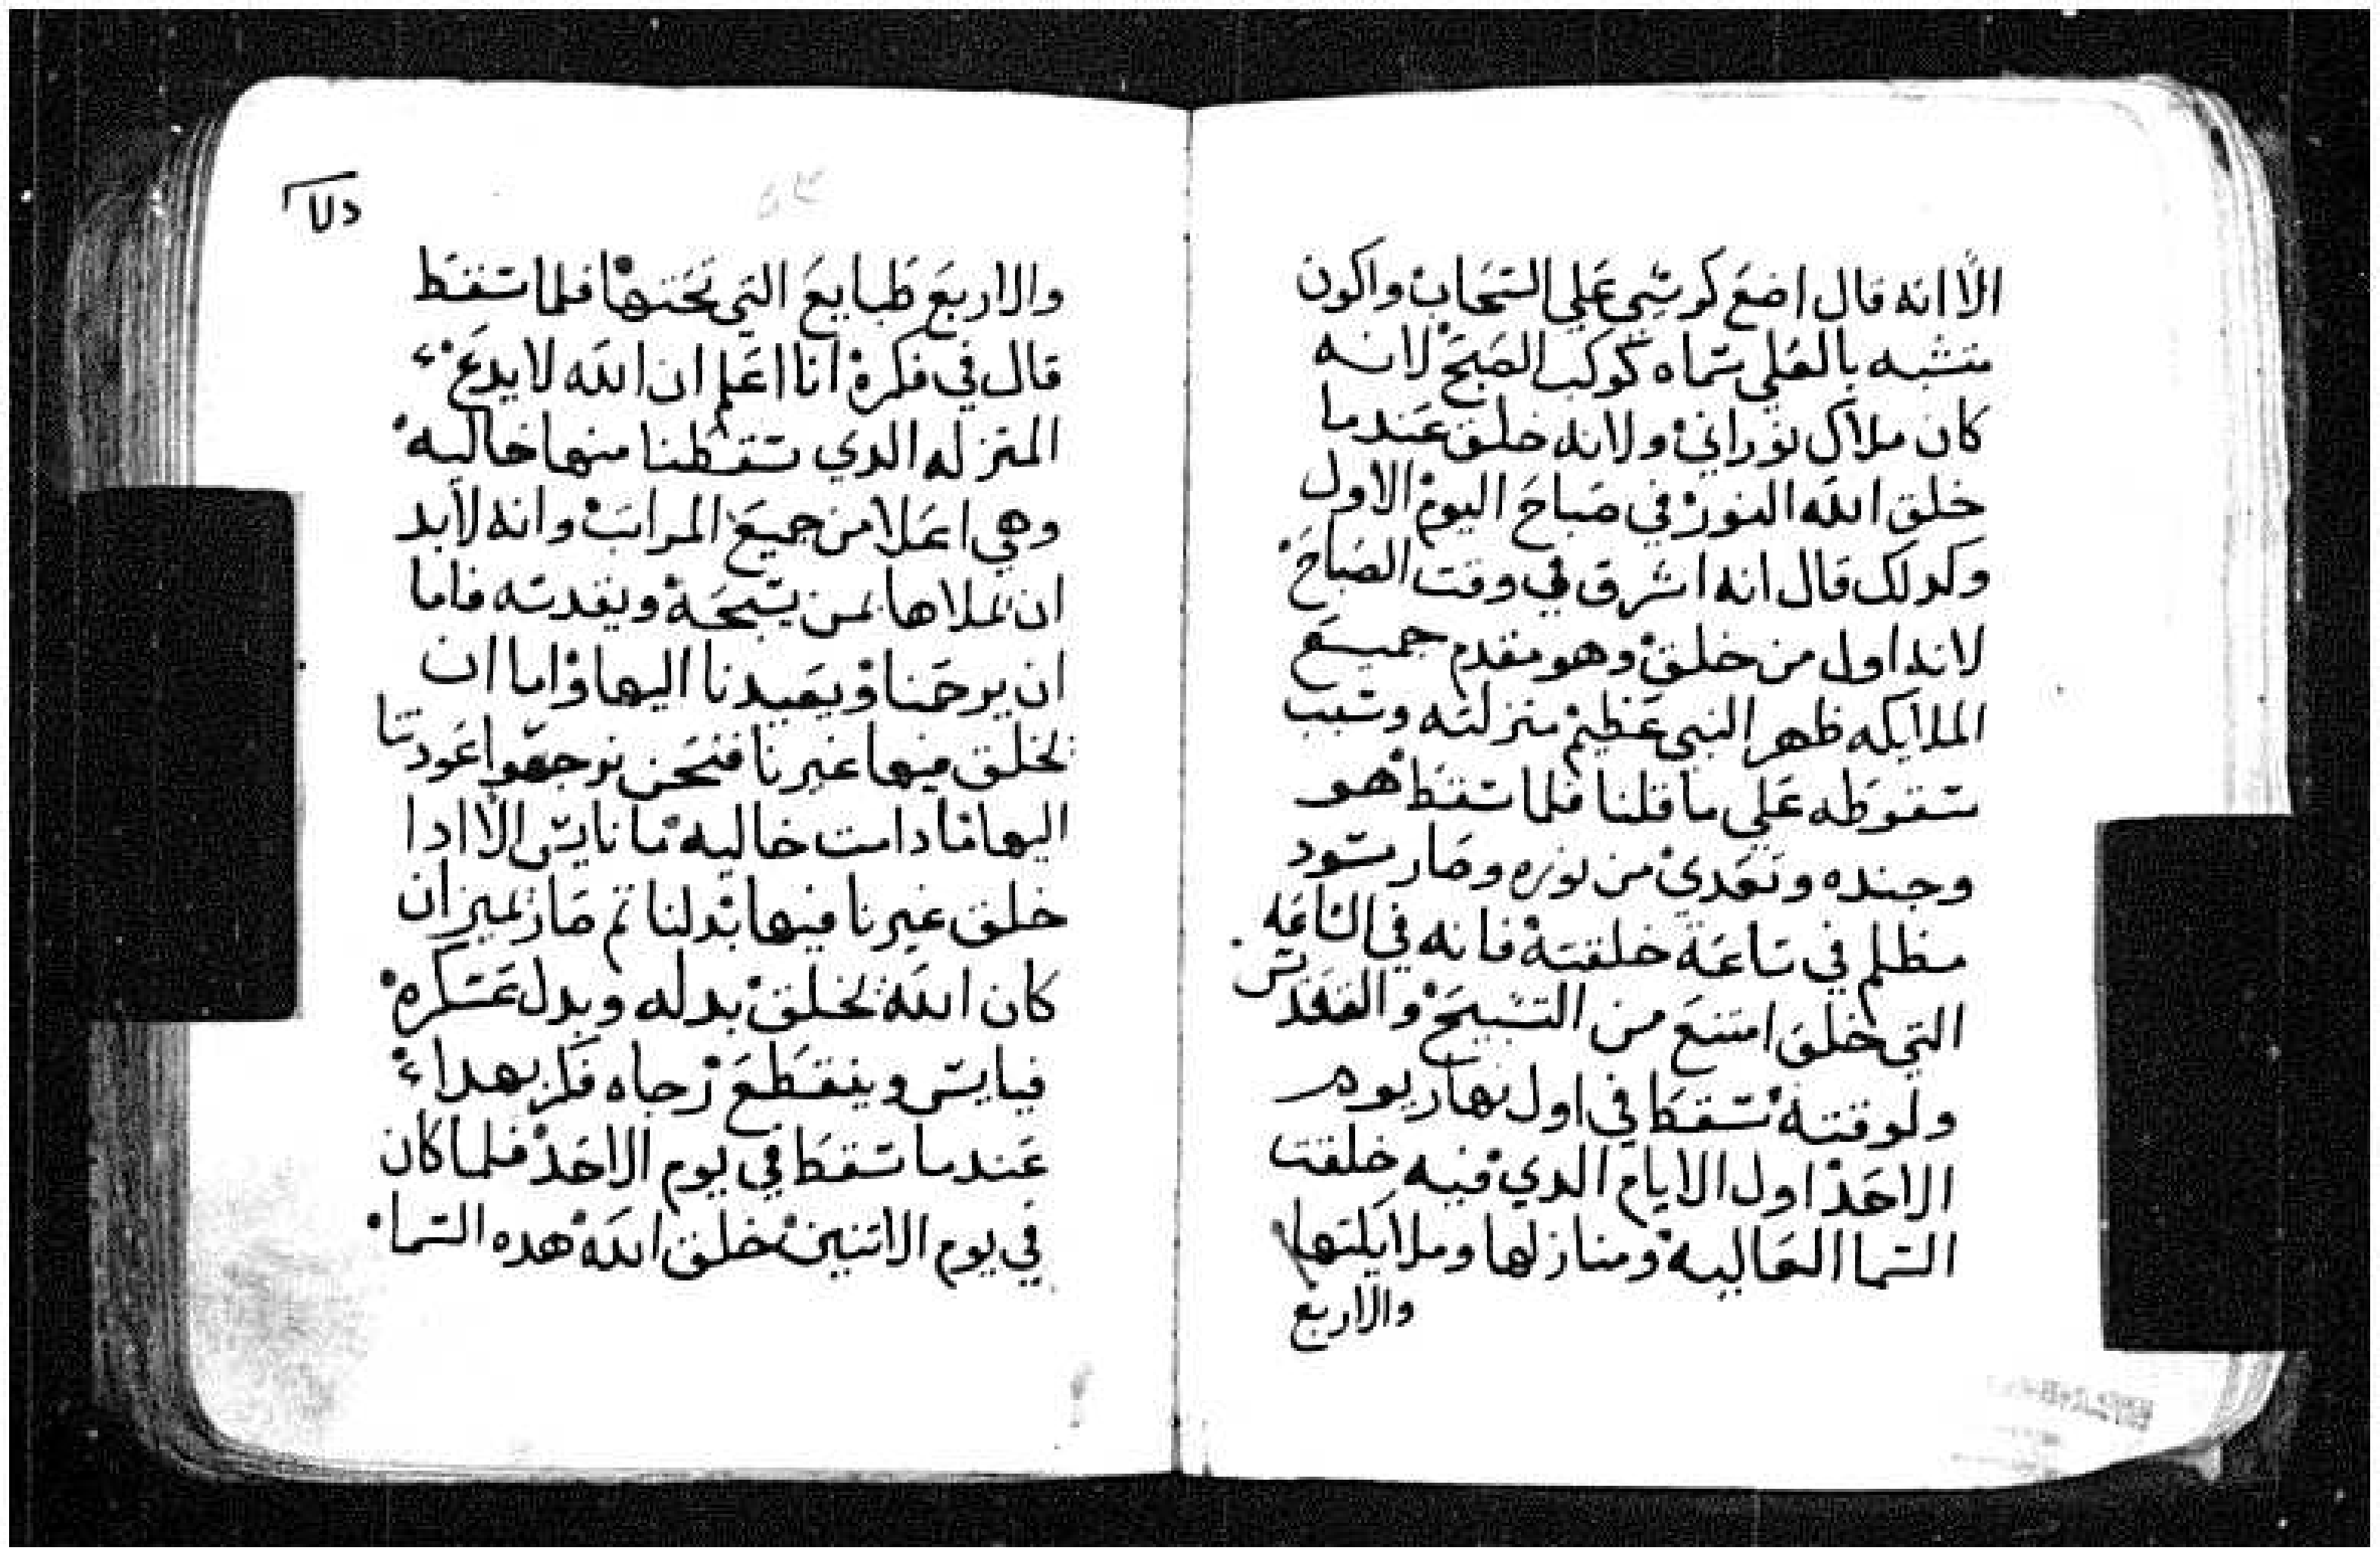 الا انه قال اضع كرسي علي السحاب واكون
متشبه بالعلي سماه كوكب الصبح لانه
كان ملاك نوراني ولانه خلق عندما
خلق الله النور في صباح اليوم الاول
وكدلك قال انه اشرق في وقت الصباح
لانه اول من خلق وهو مقدم جميع
الملايكه ظهر النبي عظيم منزلته وسبب
سقوطه علي ما قلنا فلما سقط هو
وجنده وتعدي من نوره وصار سود
مظلم في ساعة خلقته فانه في الساعه
التي خلق امتنع من التسبيح والتقديس
ولوقته سقط في اول نهار يوم
الاحد اول الايام الدي فيه خلقت
السما العاليه ومنازلها وملايكتها
والاربع
والاربع طبايع التي تحتها فلما سقط
قال في فكره انا اعلم ان الله لا يدع
المنزله الدي سقطنا منها خاليه
وهي اعلا من جميع المراتب وانه لابد
ان يملاها بمن يسبحه ويقدسه فاما
ان يرحمنا ويعيدنا اليها واما ان
يخلق فيها غيرنا فنحن نرجوا عودتنا
اليها ما دامت خاليه ما نايس الا ادا
خلق غيرنا فيها بدلنا تم صار يميز ان
كان الله يخلق بدله وبدل عسكره
فيايس وينقطع رجاه فكر بهدا
عندما سقط في يوم الاحد فلما كان
في يوم الاتنين خلق الله هده السما